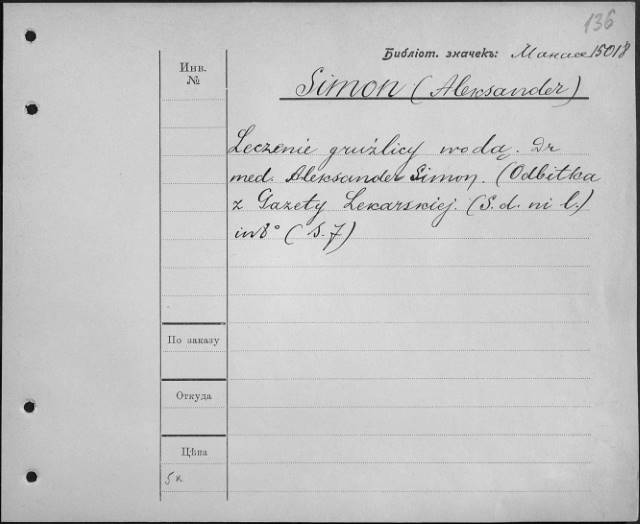 136
Библіот. значекъ: Манасе 15018
Инв.
№
Simon (Aleksander)
Leczenie gruźlicy wodą. Dr
med. Aleksander Simon. (Odbitka
z Gazety Lekarskiej. (S. d. ni l.)
in 8° (S. 7)
По заказу
Откуда
Цѣна
5к